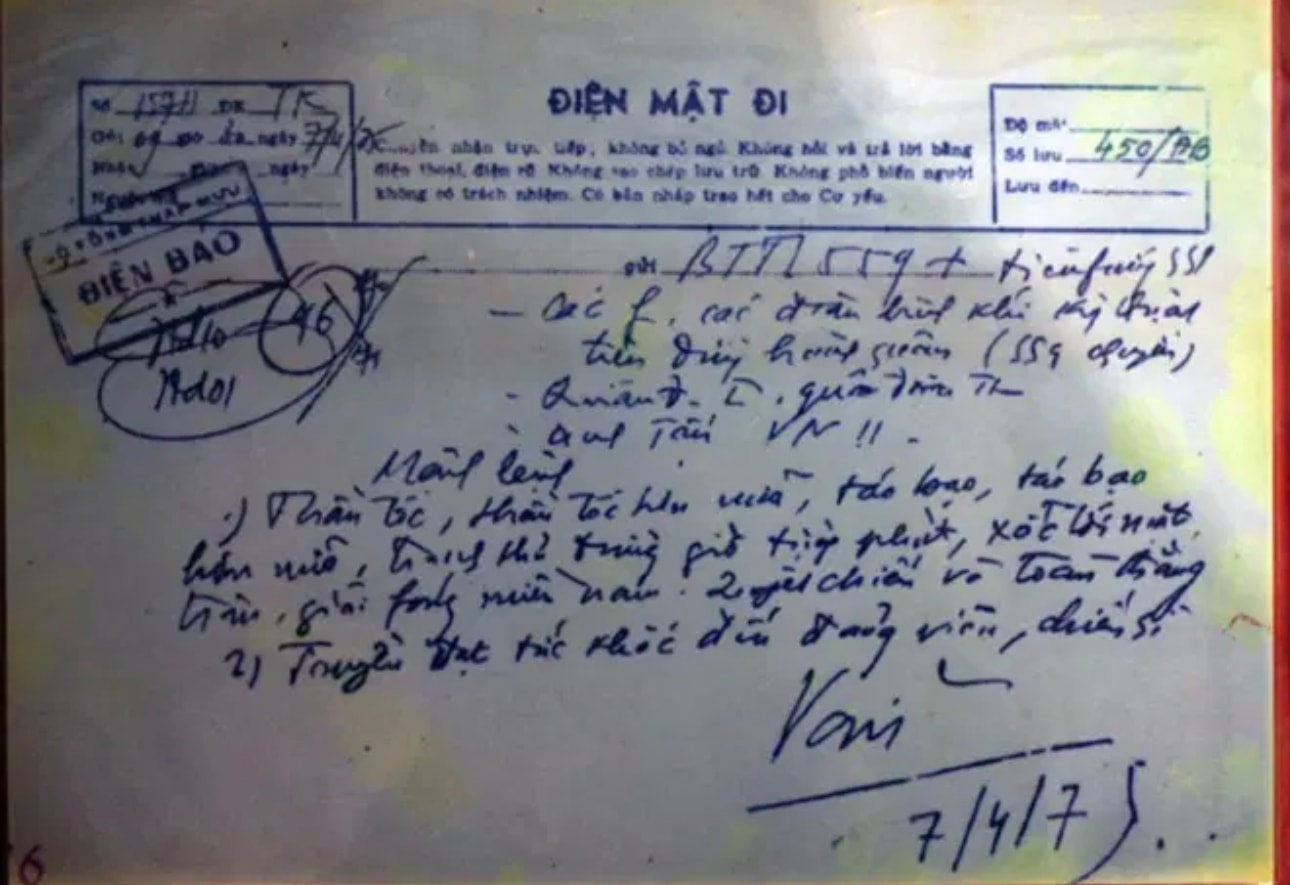 ĐIỆN MẬT ĐI
Số 157H ĐK TK
09 00 ngày 7/4/75
ngày
Chuyển nhận trực tiếp, không bỏ ngỏ. Không hỏi và trả lời bằng
điện thoại, điện rõ. Không sao chép lưu trữ. Không phổ biến người
không có trách nhiệm. Có bản nháp trao hết cho Cơ yếu.
Độ mật
Số lưu 450/AB
Lưu đến
ĐIỆN BẢO
46
gửi BTTL 559 +
- Các f, các đoàn binh khí kỹ thuật
trên đường hành quân (559 chuyển)
- Quân đ.
VN !!
Mệnh lệnh
1) Thần tốc, thần tốc hơn nữa, táo bạo, táo bạo
hơn nữa, tranh thủ từng giờ từng phút, xốc tới mặt
trận, giải fóng miền nam. Quyết chiến và toàn thắng
2) Truyền đạt tức khắc đến đảng viên, chiến sĩ
Văn
7/4/75
6